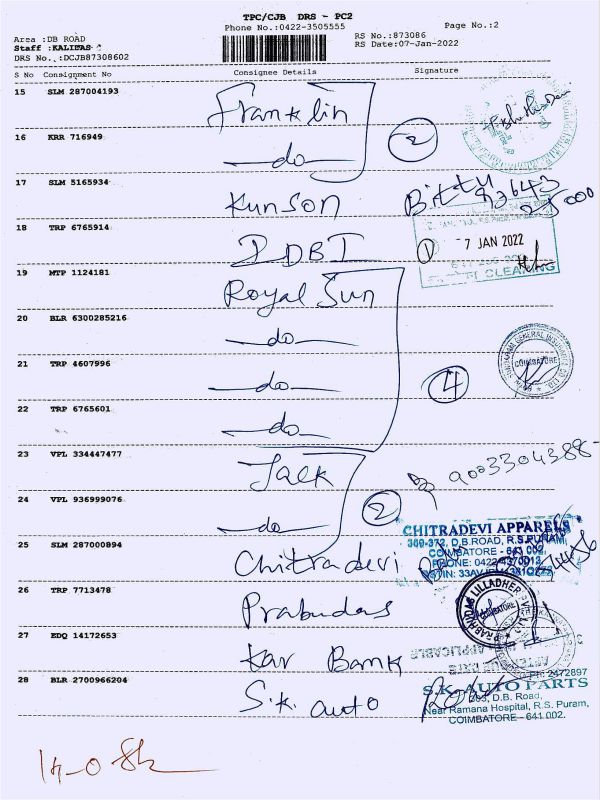 TPC/CJB DRS - PC2
Phone No.:0422-3505555
Page No.:2
Area :DB ROAD
Staff :KALIDAS
DRS No.,:DCJB87308602
RS No.:873086
RS Date:07-Jan-2022
S No Consignment No Consignee Details Signature
15 SLM 287004193 Franklin
16 KRR 716949 -do- 2
17 SLM 5165934 Kunson Bittu
18 TRP 6765914 IDBI 1
7 JAN 2022
CLEARING
19 MTP 1124181 Royal Sun
20 BLR 6300285216 -do-
21 TRP 4607996 -do- 4
COIMBATORE
22 TRP 6765601 -do-
23 VPL 334447477 Jalk
9003304388-
24 VPL 936999076 -do- 2
CHITRADEVI APPARELS
309-372, D.B.ROAD, R.S.PURAM,
COIMBATORE - 641 002.
PHONE: 0422-4370012
25 SLM 287000894 Chitradevi
26 TRP 7713478 Prabudas
PRABHUDAS LILLADHER PVT. LTD.
COIMBATORE
27 EDQ 14172653 Kar Bank
28 BLR 2700966204 S.K. auto
PH: 2472897
S.K. AUTO PARTS
203, D.B. Road,
Near Ramana Hospital, R.S. Puram,
COIMBATORE - 641 002.